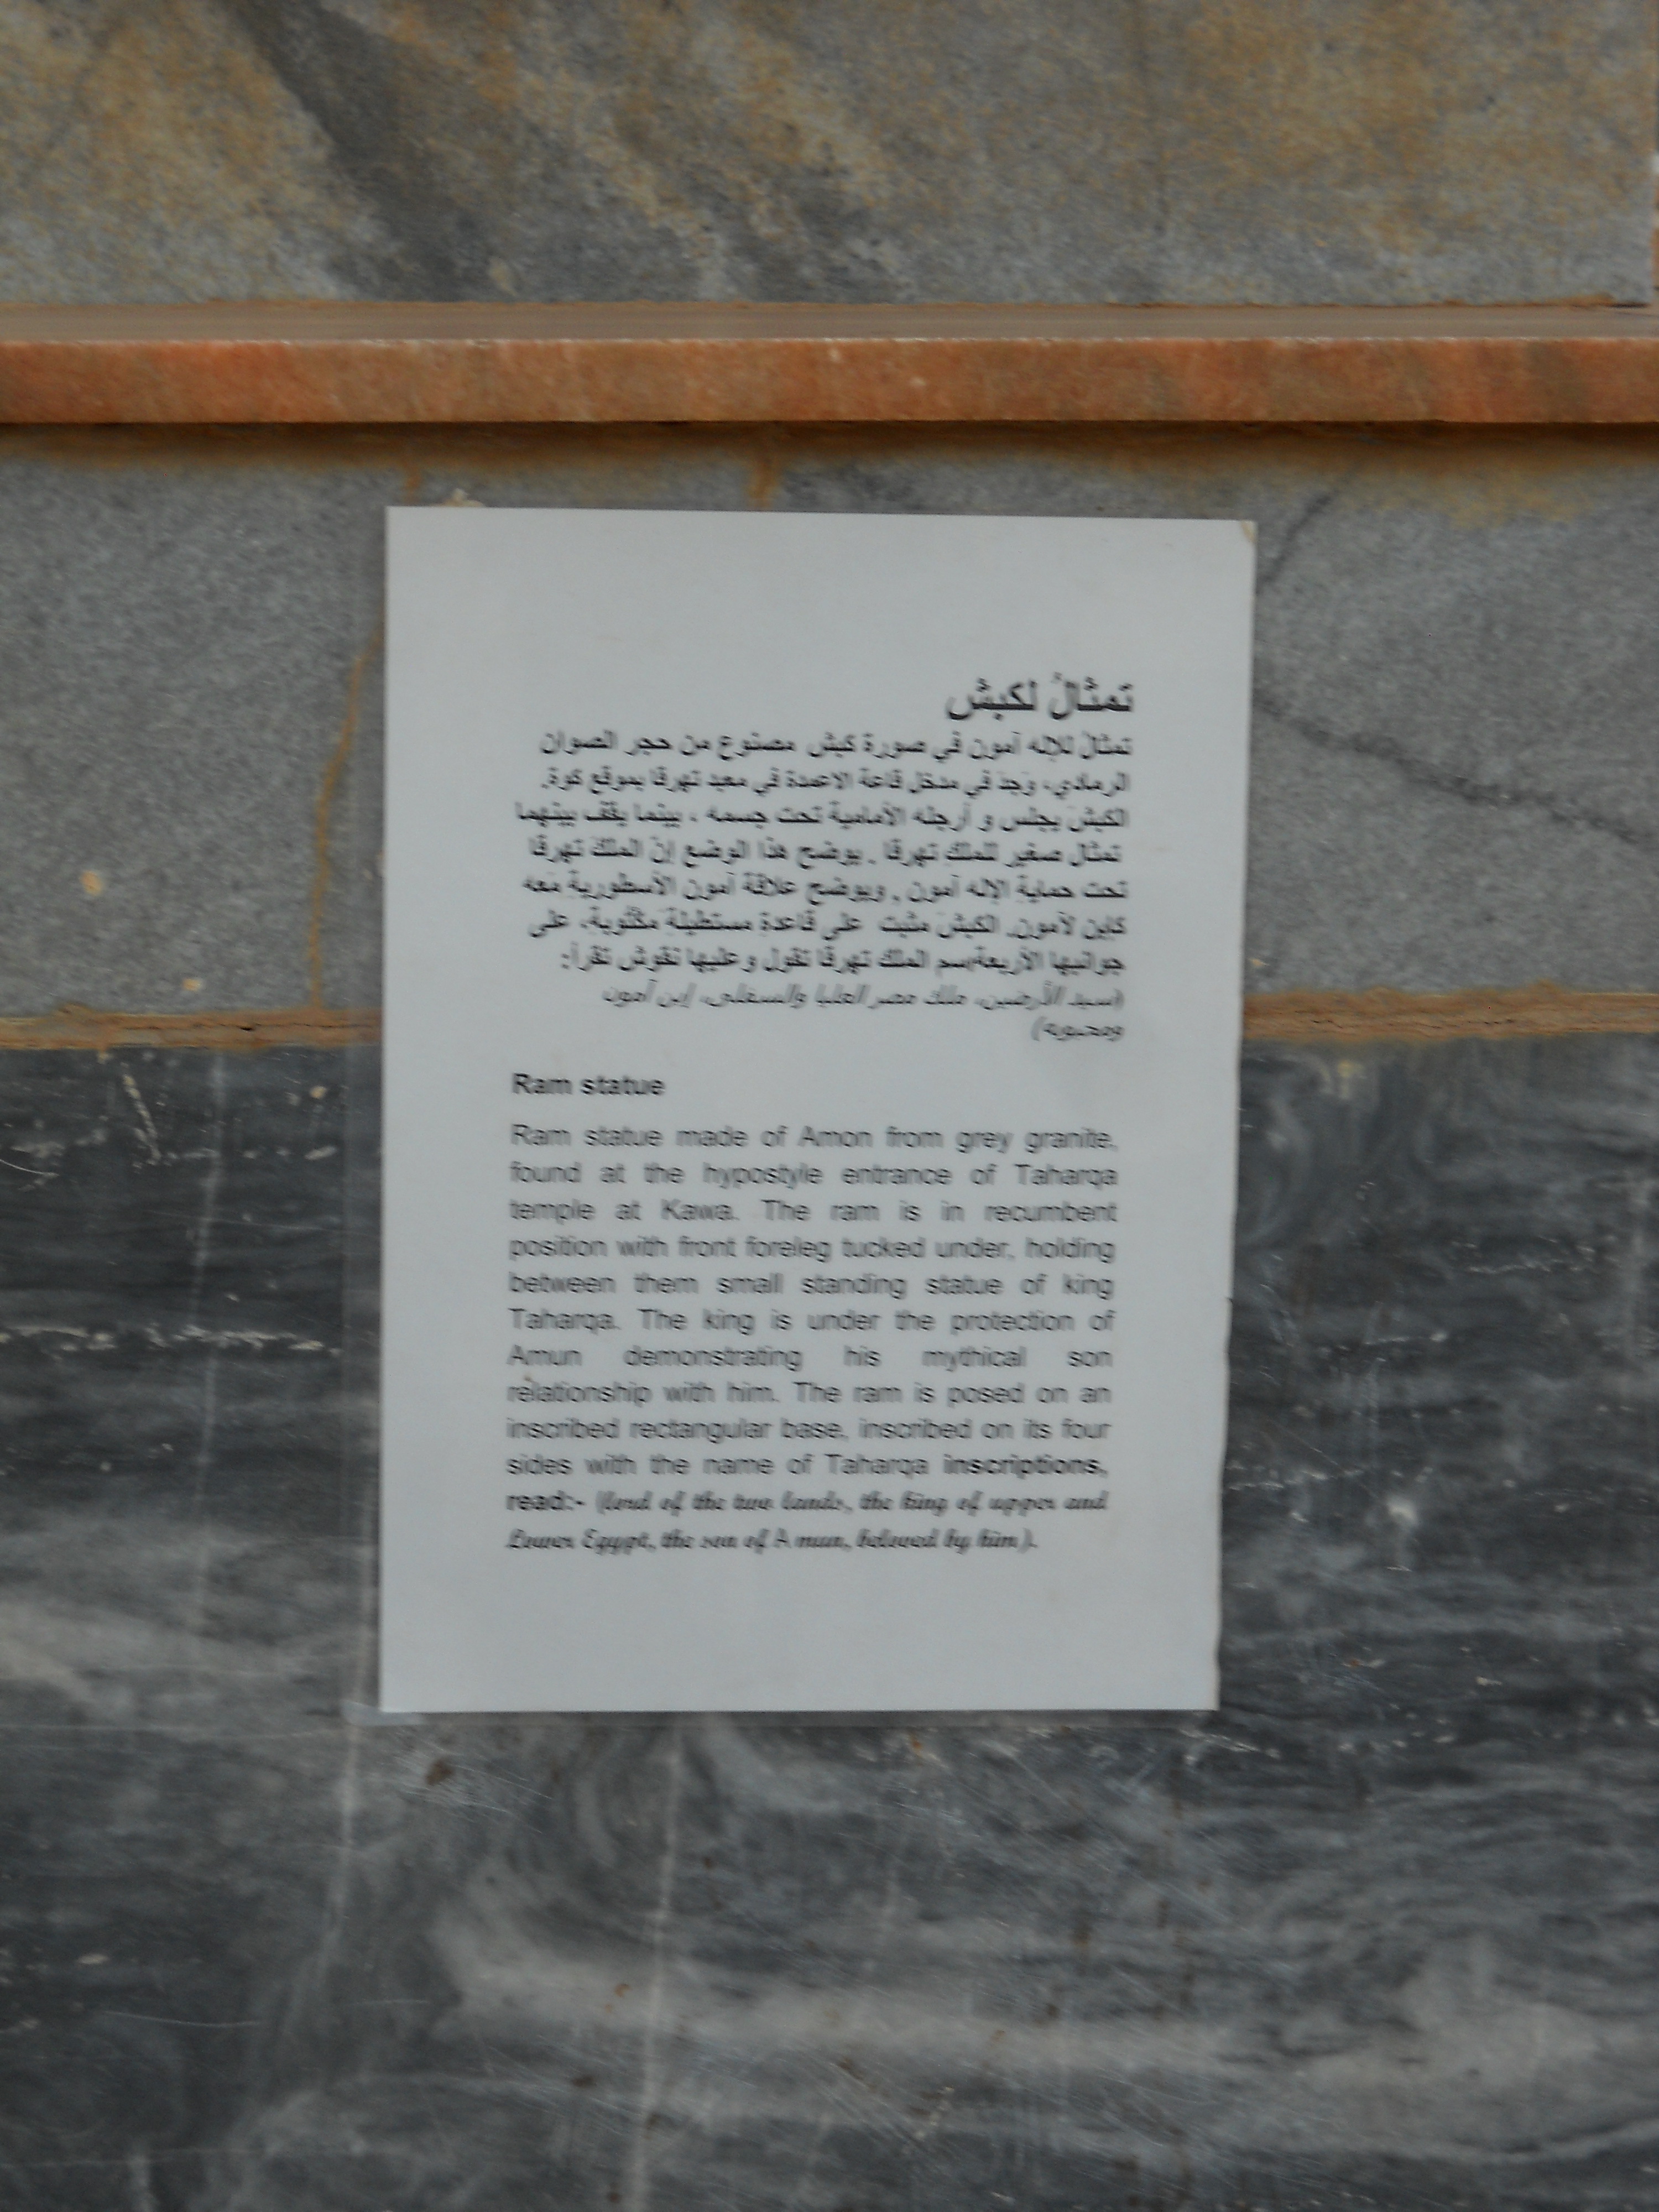 تمثالُ لكبش
تمثالُ للإله آمون في صورة كبش مصنوع من حجر الصوان
الرمادي، وُجدَ في مدخل قاعة الاعمدة في معبد تهرقا بموقع كوة.
الكبشَ يجلس و أرجله الأمامية تحت جسمه ، بينما يقف بينهما
تمثال صغير للملك تهرقا . يوضح هذا الوضع إنّ الملكَ تهرقا
تحت حمايةِ الإله آمون , ويوضح علاقة آمون الأسطورية مَعه
كإبن لآمون. الكبشَ مثبت على قاعدةِ مستطيلةَ مكْتُوبة، على
جوانبها الأربعةبإسم الملك تهرقا تقول وعليها نقوش تقرأ:
(سيد الأرضين، ملك مصر العليا والسفلى، إبن آمون
ومحبوبه)
Ram statue
Ram statue made of Amon from grey granite,
found at the hypostyle entrance of Taharqa
temple at Kawa. The ram is in recumbent
position with front foreleg tucked under, holding
between them small standing statue of king
Taharqa. The king is under the protection of
Amun demonstrating his mythical son
relationship with him. The ram is posed on an
inscribed rectangular base, inscribed on its four
sides with the name of Taharqa inscriptions,
read:- (lord of the two lands, the king of upper and
Lower Egypt, the son of A mun, beloved by him).